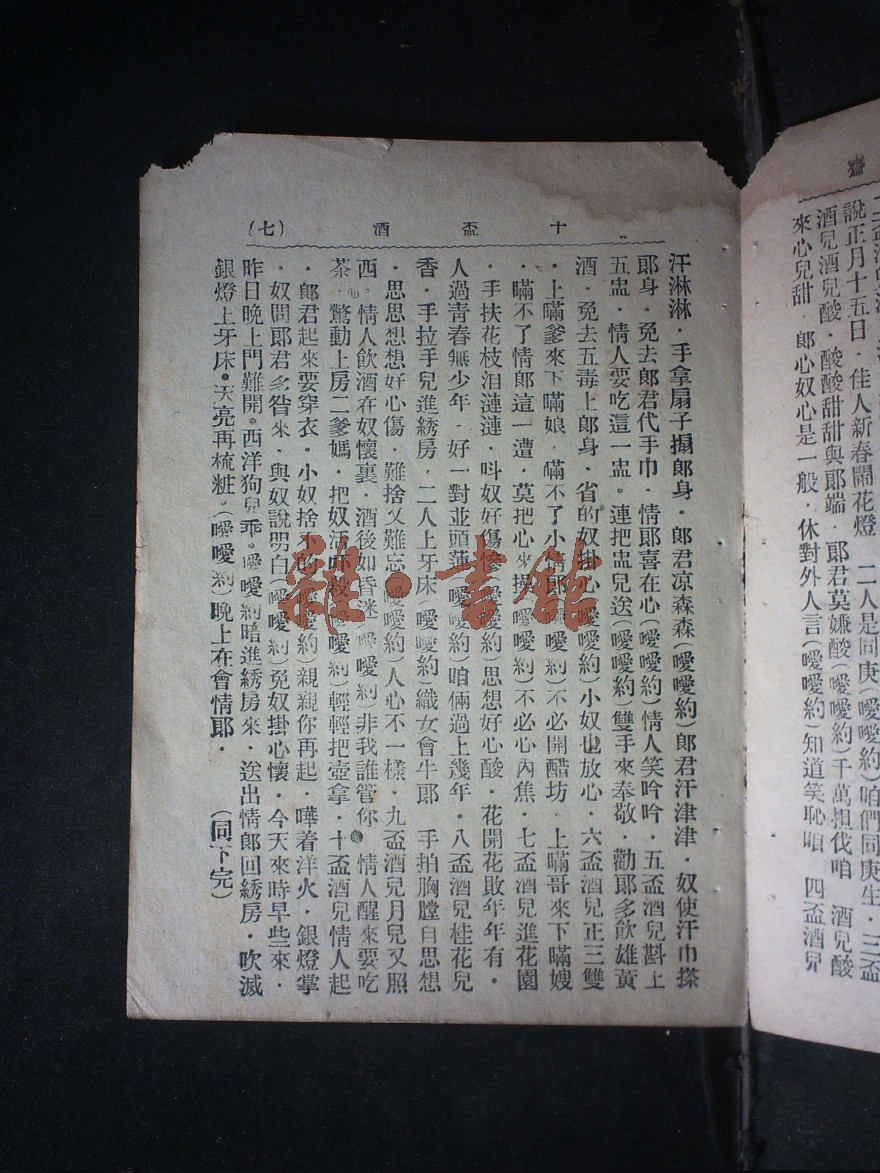 齋
二人是同庚(噯噯約)咱們同庚生．三盃
說正月十五日．佳人新春鬧花燈
酒兒酒兒酸．酸酸甜甜與郎端．郎君莫嫌酸(噯噯約)千萬担伐咱 酒兒酸
來心兒甜．郎心奴心是一般．休對外人言(噯噯約)知道笑恥咱 四盃酒兒
十盃酒 (七)
汗淋淋．手拿扇子搧郎身．郎君凉森森(噯噯約)郎君汗津津．奴使汗巾搽
郎身．免去郎君代手巾．情郎喜在心(噯噯約)情人笑吟吟．五盃酒兒斟上
五盅．情人要吃這一盅。連把盅兒送(噯噯約)雙手來奉敬．勸郎多飲雄黃
酒．免去五毒上郎身．省的奴掛心(噯噯約)小奴也放心．六盃酒兒正三雙
．上瞞爹來下瞞娘．瞞不了小情郎(噯噯約)不必開醋坊．上瞞哥來下瞞嫂
．瞞不了情郎這一遭．莫把心來操(噯噯約)不必心內焦．七盃酒兒進花園
．手扶花枝泪漣漣．呌奴好傷慘(噯噯約)思想好心酸．花開花敗年年有．
人過青春無少年．好一對並頭蓮(噯噯約)咱倆過上幾年．八盃酒兒桂花兒
香．手拉手兒進綉房．二人上牙床(噯噯約)織女會牛郎 手拍胸膛自思想
．思思想想好心傷．難捨又難忘(噯噯約)人心不一樣．九盃酒兒月兒又照
西．情人飲酒在奴懷裏．酒後如昏迷(噯噯約)非我誰管你。情人醒來要吃
茶．驚動上房二爹媽．把奴活吓殺(噯噯約)輕輕把壺拿．十盃酒兒情人起
．郎君起來要穿衣．小奴捨不的(噯噯約)親親你再起．嘩着洋火．銀燈掌
．奴問郎君多咎來．與奴說明白(噯噯約)免奴掛心懷．今天來時早些來．
昨日晚上門難開。西洋狗兒乖。噯噯約暗進綉房來．送出情郎回綉房．吹滅
銀燈上牙床。天亮再梳粧。(噯噯約)晚上在會情郎． (同下完)
雜·書館